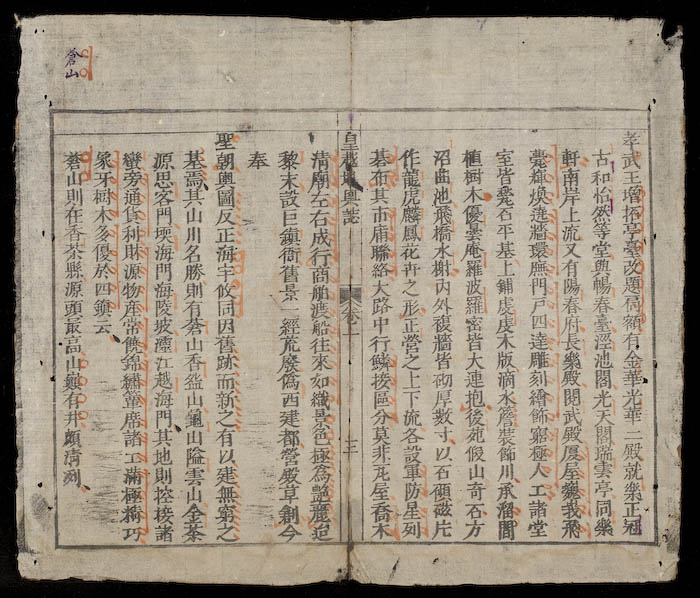 孝武王增拓亭臺改題扁額有金華光華二殿就樂正冠
古和怡然等堂與暢春臺滛池閣光天閣瑞雲亭同樂
軒南岸上流又有陽春府長樂殿閱武殿厦屋巍我飛
甍輝煥遶墻環廡門戶四達雕刻繪飾窮極人工諸堂
室皆甃石平基上鋪虔虔木版滴水簷裝飾川承溜間
植樹木優曇庵羅波羅密皆大連抱後苑假山奇石方
沼曲池飛橋水榭內外複墻皆砌厚數寸以石傾磁片
作龍虎麟鳳花卉之形正營之上下流各設軍防星列
碁布其市庯聯絡大路中行鱗接區分莫非瓦屋喬木
皇越地輿誌 卷一
清廟左右成行商舶渡船往來如織景色極為艶麗迨
黎末設巨鎮衙舊景一經荒廢偽西建都營殿草創今
奉
聖朝輿圖反正海宇攸同因舊跡而新之有以建無窮之
基焉其山川名勝則有蒼山香盆山龜山隘雲山金茶
源思客門㙁海門海陵坡瀘江越海門其地則控稜諸
蠻旁通貨利財源物產常饒錦繡簟席諸工滿極擣巧
象牙樹木多優於四鎮云
蒼山則在香茶縣源頭最高山巔有井頗清冽
蒼山